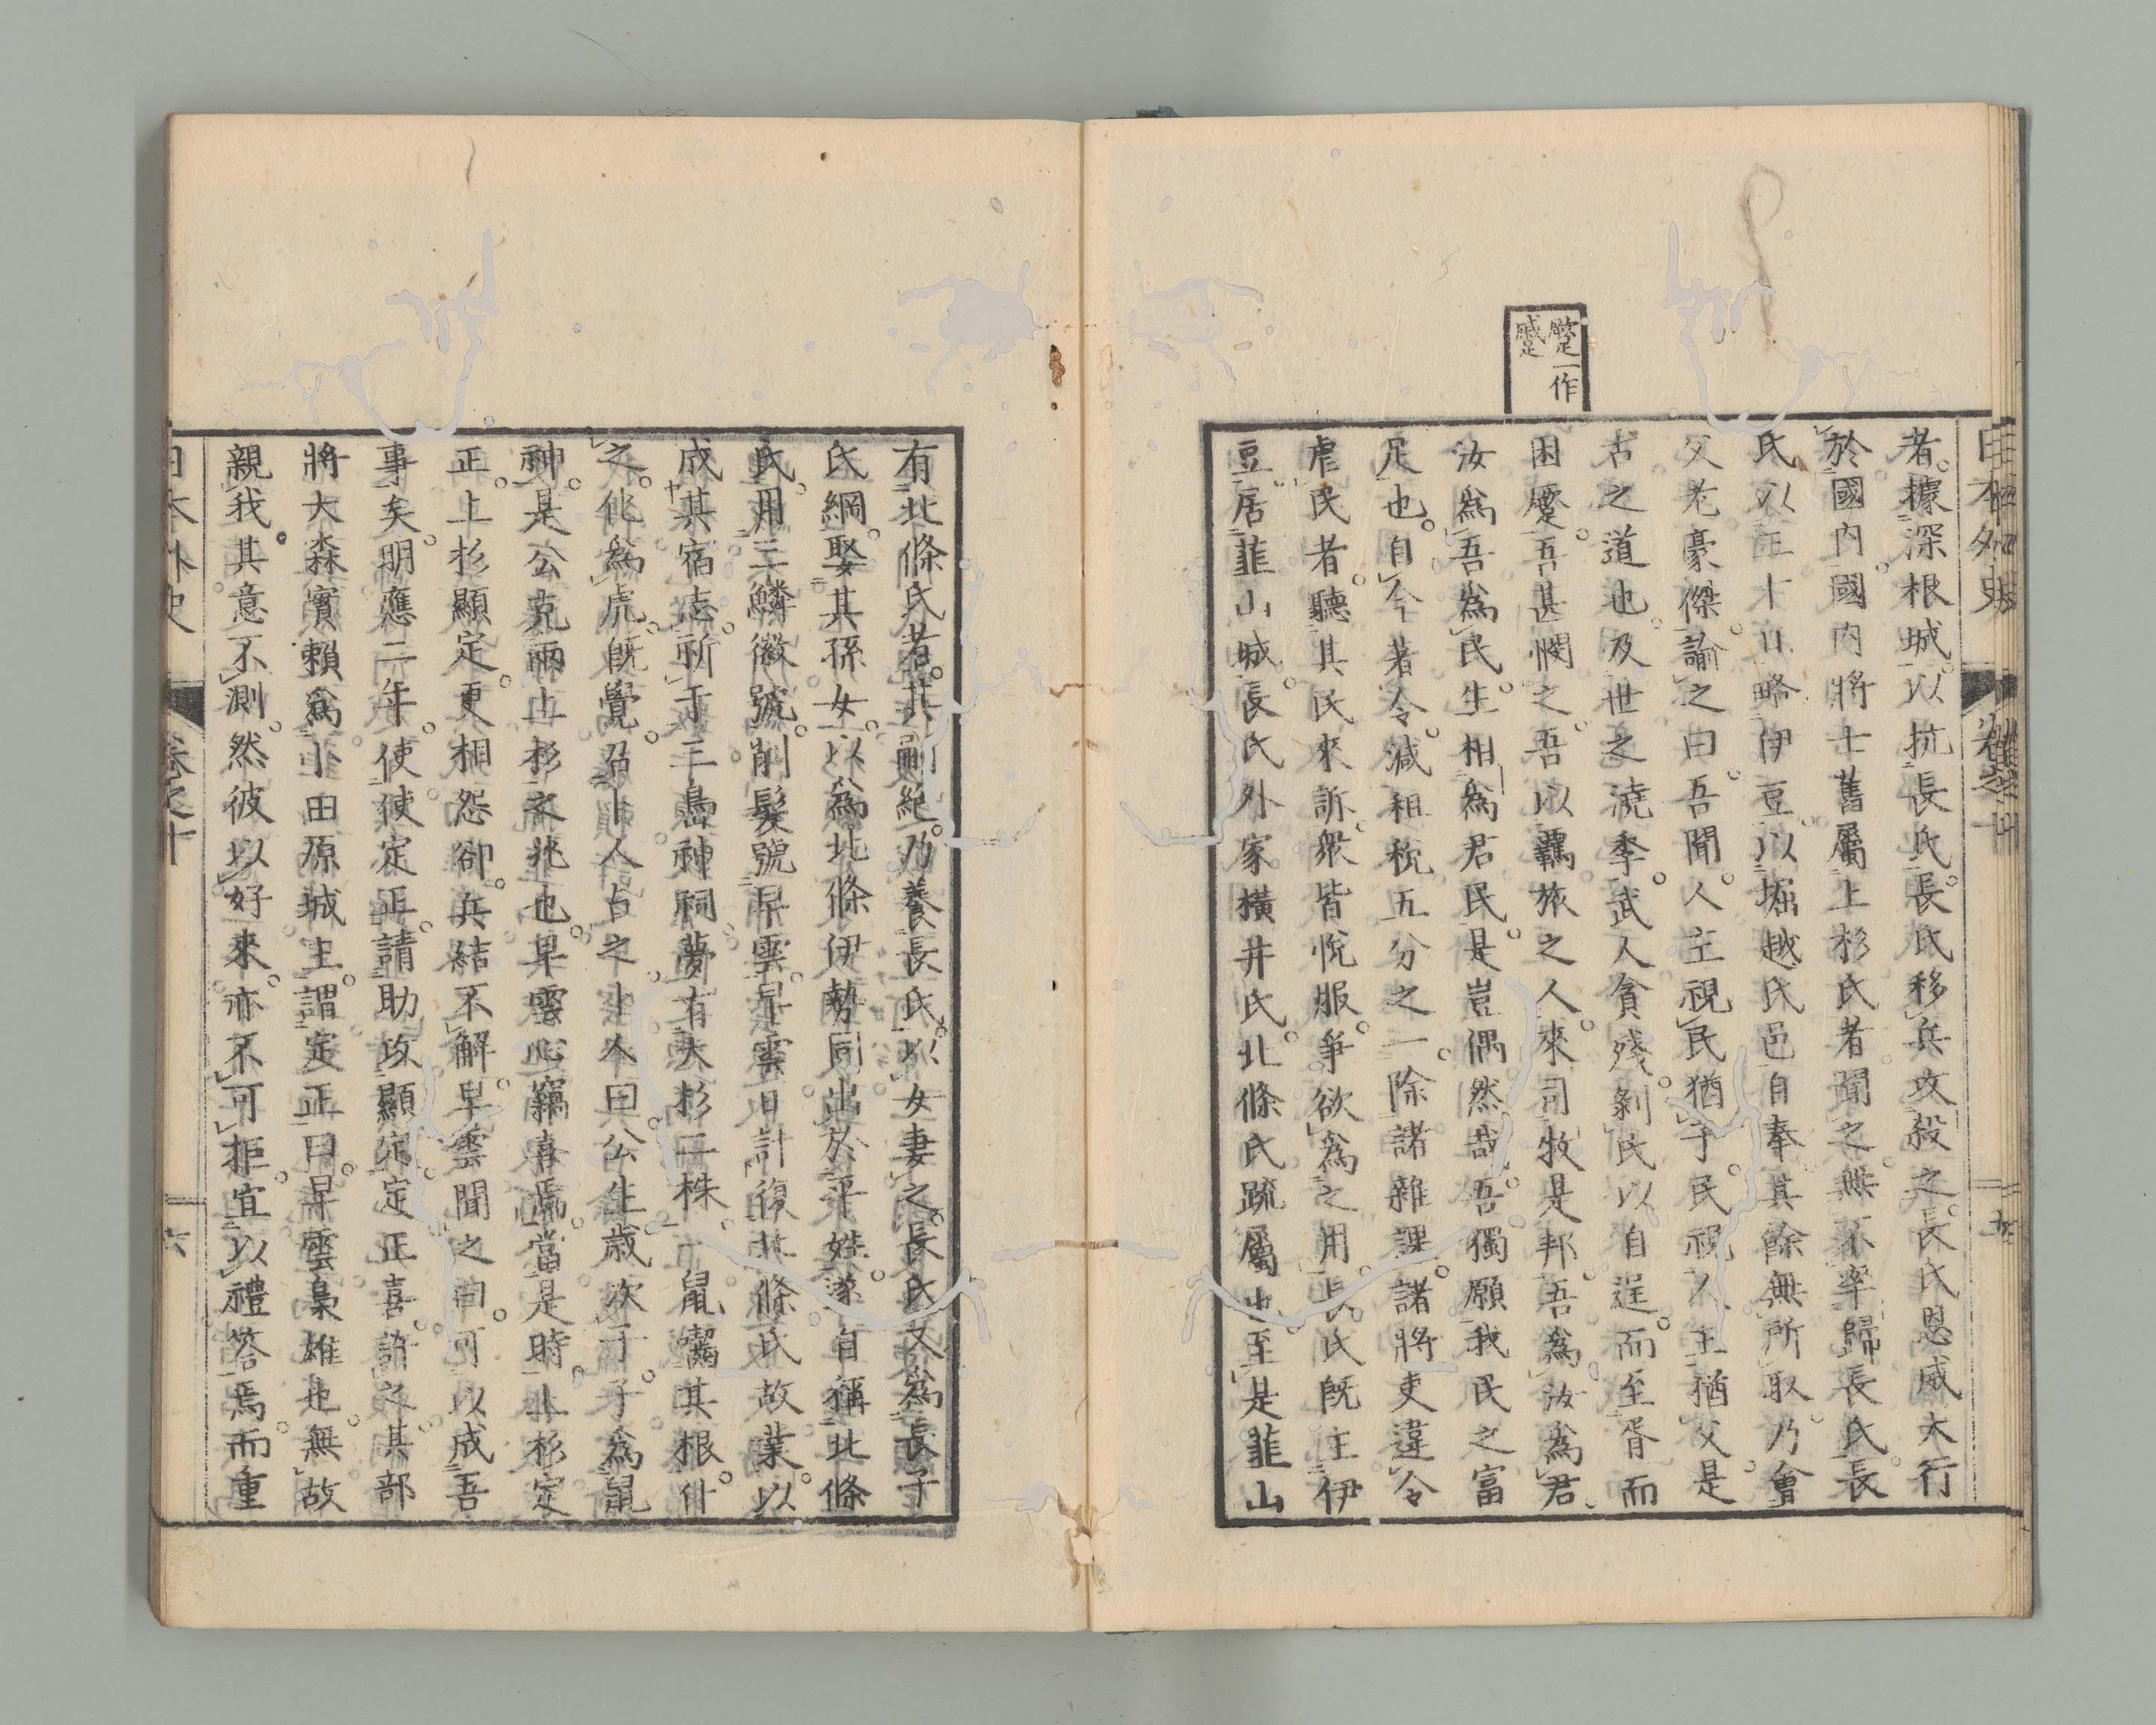 蹙一作
蹵
日本外史 卷之十
者。據深根城。以抗長氏。長氏移兵攻殺之。長氏恩威大行
於國內。國內將士舊屬上杉氏者。聞之。無不率歸長氏。長
氏以三十日略伊豆。以堀越氏邑自奉。其餘無所取。乃會
父老豪傑。諭之曰。吾聞。人主視民猶子。民視人主猶父。是
古之道也。及世之澆季。武人貪殘。剝民以自逞。而至胥而
困蹙。吾甚憫之。吾以羈旅之人。來司牧是邦。吾為汝為君。
汝為吾為民。生相為君民。是豈偶然哉。吾獨願我民之富
足也。自今著令。減租稅五分之一。除諸雜課。諸將吏違令
虐民者。聽其民來訴。衆皆悅服。爭欲為之用。長氏既主伊
豆。居韮山城。長氏外家橫井氏。北條氏疏屬也。至是韮山
有北條氏者。其嗣絕。乃養長氏。以女妻之。長氏又為長子
氏綱。娶其孫女。以為北條伊勢同出於平姓。遂自稱北條
氏。用三鱗徽號。削髮號早雲。早雲日計復北條氏故業。以
成其宿志。祈于三島神祠。夢有大杉二株。一鼠囓其根。仆
之。化為虎。既覺。召卜人占之。卜人曰。公生歲次于子。為鼠
神。是公克兩上杉之兆也。早雲心竊喜焉。當是時。上杉定
正。上杉顯定。更相怨卻。兵結不解。早雲聞之曰。可以成吾
事矣。明應二年。使使定正。請助攻顯定。定正喜。許之。其部
將大森實賴為小田原城主。謂定正曰。早雲梟雄也。無故
親我。其意不測。然彼以好來。亦不可拒。宜以禮答焉。而重
日本外史 卷之十 六